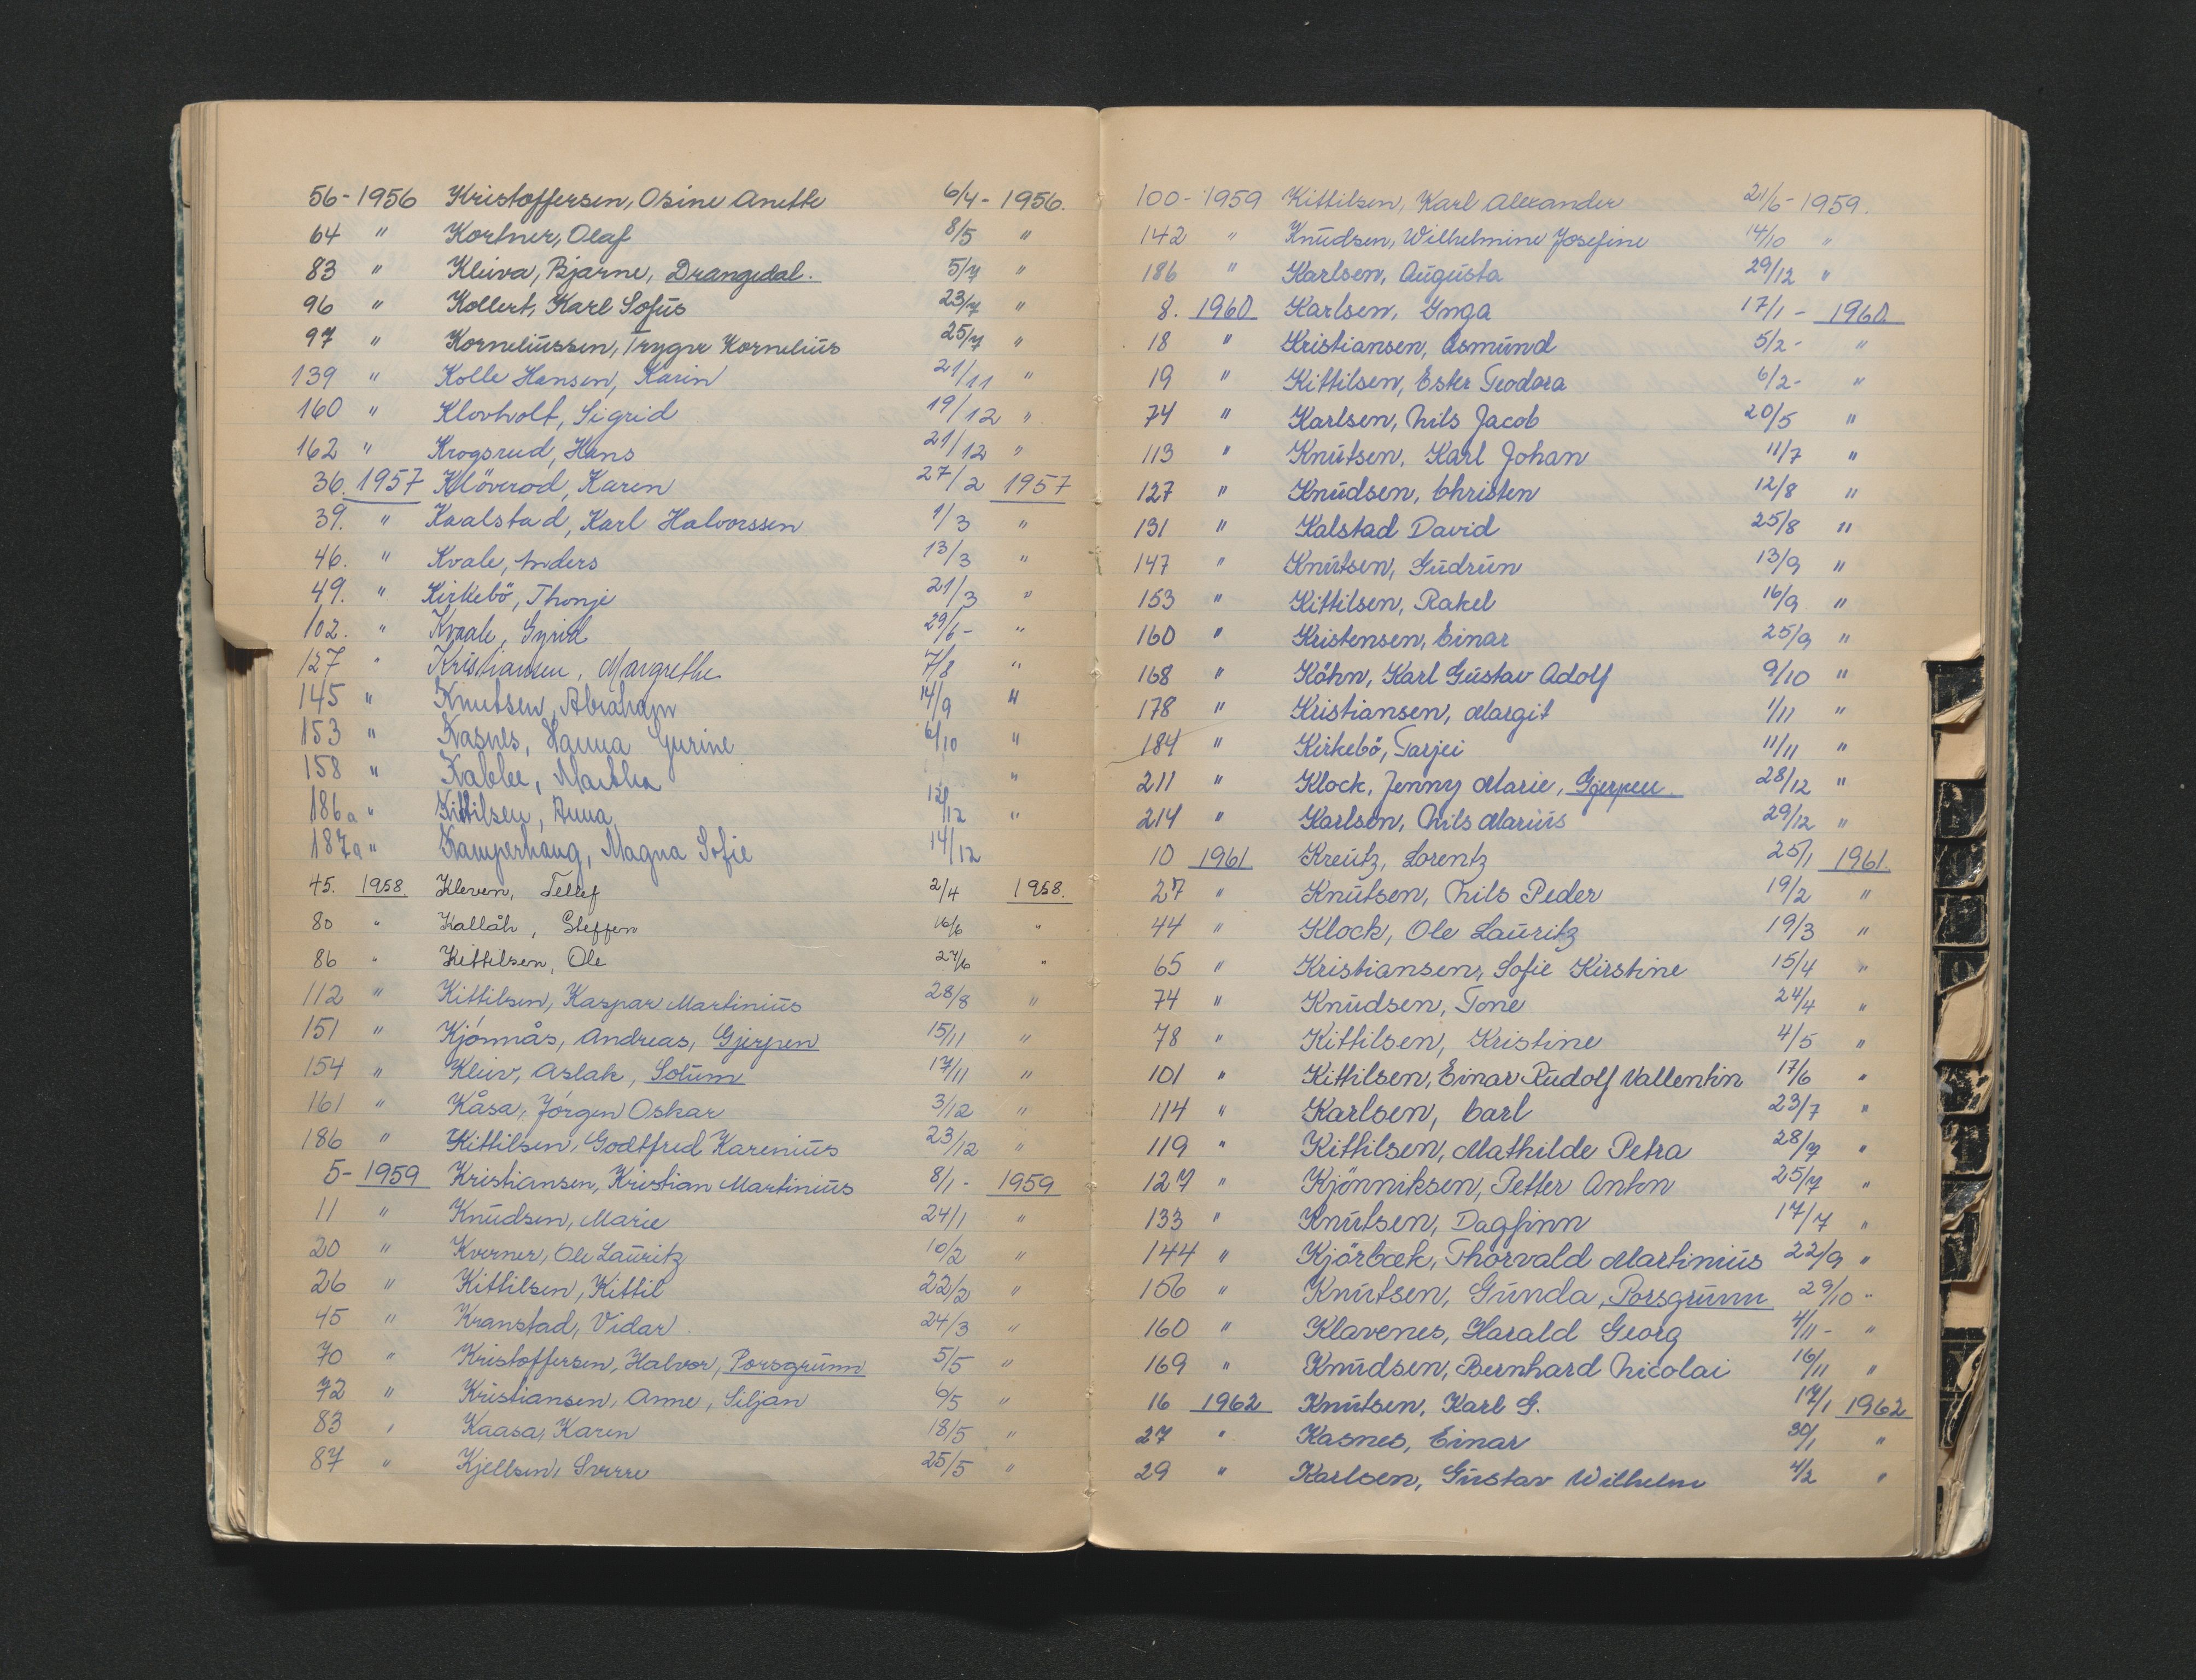 56 - 1956 Kristoffersen, Osine Anette 6/4 - 1956.
64 " Kortner, Olaf 8/5 "
83 " Kleiva, Bjarne, Drangedal. 5/7 "
96 " Kollert, Karl Sofus 23/7 "
97 " Korneliussen, Trygve Kornelius 25/7 "
139 " Kolle Hansen, Karin 21/11 "
160 " Klovholt, Sigrid 19/12 "
162 " Krogsrud, Hans 21/12 "
36. 1957 Klöverod, Karen 27/2 1957
39. " Kaalstad, Karl Halvorssen 1/3 "
46. " Kvale, Anders 13/3 "
49. " Kirkebö, Thonje 21/3 "
102. " Kvaale, Gyrid 29/6 - "
127 " Kristiansen, Margrethe 7/8 "
145 " Knutsen, Abraham 14/9 "
153 " Kasnes, Hanna Gurine 6/10 "
158 " Kablee, Martha "
186a " Kittilsen, Anna 12/12 "
187a " Kamperhaug, Magna Sofie 14/12
45. 1958. Kleven, Tellef 2/4 1958.
80 " Kallåk, Steffen 16/6 "
86 " Kittilsen, Ole 27/6 "
112 " Kittilsen, Kaspar Martinius 28/8 "
151 " Kjönnås, Andreas, Gjerpen 15/11 "
154 " Kleiv, Aslak, Solum 17/11 "
161 " Kåsa, Jörgen Oskar 3/12 "
186 " Kittilsen, Godtfred Karenius 23/12 "
5 - 1959 Kristiansen, Kristian Martinius 8/1 - 1959
11 " Knudsen, Marie 24/1 "
20 " Kverner, Ole Lauritz 10/2 "
26 " Kittilsen, Kittil 22/2 "
45 " Kranstad, Vidar 24/3 "
70 " Kristoffersen, Halvor, Porsgrunn 5/5 "
72 " Kristiansen, Anne, Siljan 6/5 "
83 " Kaasa, Karen 18/5 "
87 " Kjellsen, Sverre 25/5 "
100 - 1959 Kittilsen, Karl Alexander 21/6 - 1959.
142 " Knudsen, Wilhelmine Josefine 14/10 "
186 " Karlsen, Augusta 29/12 "
8. 1960 Karlsen, Inga 17/1 - 1960.
18 " Kristiansen, Asmund 5/2 - "
19 " Kittilsen, Ester Teodora 6/2 - "
74 " Karlsen, Nils Jacob 20/5 "
113 " Knutsen, Karl Johan 11/7 "
127 " Knudsen, Christen 12/8 "
131 " Kalstad David 25/8 "
147 " Knutsen, Gudrun 13/9 "
153 " Kittilsen, Rakel 16/9 "
160 " Kristensen, Einar 25/9 "
168 " Köhn, Karl Gustav Adolf 9/10 "
178 " Kristiansen, Margit 1/11 "
184 " Kirkebö, Tarjei 11/11 "
211 " Klock, Jenny Marie, Gjerpen. 28/12 "
214 " Karlsen, Nils Marius 29/12 "
10 1961 Kreutz, Lorentz 25/1 1961.
27 " Knutsen, Nils Peder 19/2 "
44 " Klock, Ole Lauritz 19/3 "
65 " Kristiansen, Sofie Kirstine 15/4 "
74 " Knudsen, Tone 24/4 "
78 " Kittilsen, Kristine 4/5 "
101 " Kittilsen, Einar Rudolf Vallentin 17/6 "
114 " Karlsen, Carl 23/7 "
119 " Kittilsen, Mathilde Petra 28/7 "
127 " Kjönniksen, Petter Anton 25/7 "
133 " Knutsen, Dagfinn 17/7 "
144 " Kjörbæk, Thorvald Martinius 22/9 "
156 " Knutsen, Gunda, Porsgrunn 29/10 "
160 " Klavenes, Harald Georg 4/11 - "
169 " Knudsen, Bernhard Nicolai 16/11 "
16 1962 Knutsen, Karl G. 17/1 1962
27 " Kasnes, Einar 30/1 "
29 " Karlsen, Gustav Wilhelm 4/2 "